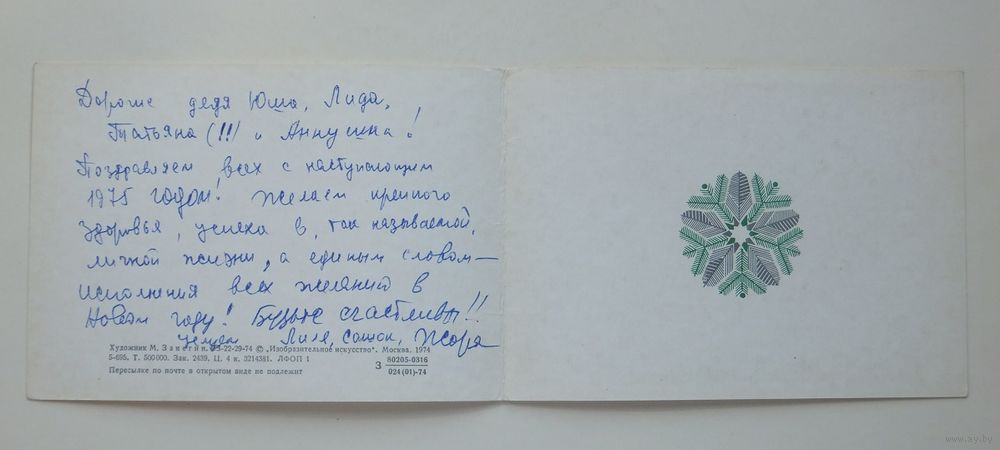 Дорогие дядя Юша, Лида,
Татьяна (!!!) и Аннушка!
Поздравляем всех с наступающим
1975 годом! Желаем крепкого
здоровья, успеха в, так называемой,
личной жизни, а единым словом —
исполнения всех желаний в
Новом году! Будьте счастливы!!
Целуем Лиля, Сашок, Жора
Художник М. Занегин. 23-22-29-74 © „Изобразительное искусство“. Москва. 1974
5-695. Т. 500000. Зак. 2439. Ц. 4 к. 0214381. ЛФОП 1
Пересылке по почте в открытом виде не подлежит
З 80205-0316
024(01)-74
www.ay.by